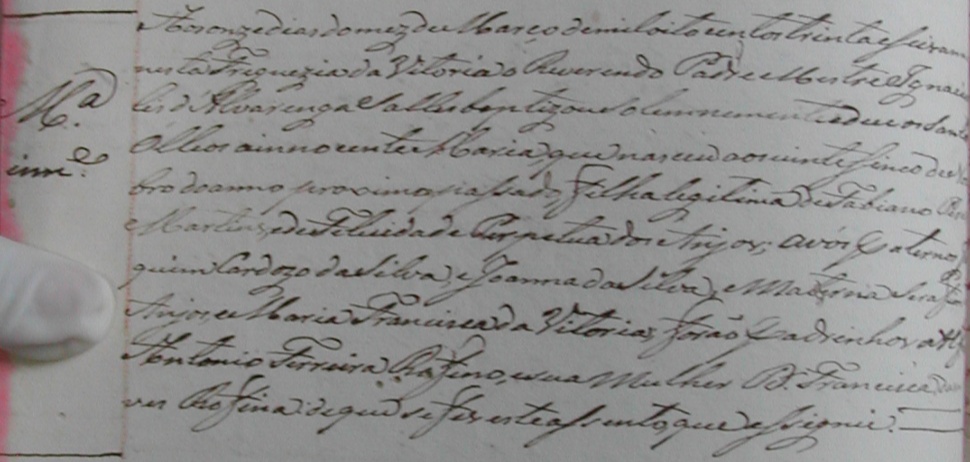 Aos onze dias do mez de Março de mil oito centos trinta e seis
nesta Freguezia da Vitoria o Reverendo Padre Mestre Ignacio
M.ª
d'Alvarenga Salles baptizou solemnemente e deu os Santos
inn.e
Olleos a innocente Maria, que nasceu aos vinte sinco de
bro do anno proximo passado, filha legitima de Fabiano
Martins, e de Felicidade Perpetua dos Anjos; avós Paternos
quim Cardozo da Silva, e Joanna da Silva, e Materna
Anjos, e Maria Francisca da Vitoria, forão Padrinhos o
Antonio Ferreira Rofino, e sua Mulher D. Francisca
ves Rofina: de que se fez este assento, que assignei.